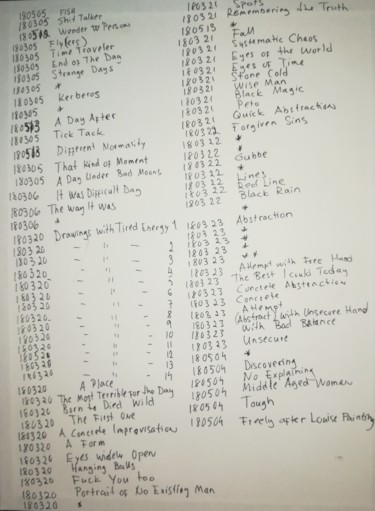 180305 FISH
180305 Shit Talker
180513 Wonder W Persons
180305 Fly(er)s
180305 Time Traveler
180305 End of The Day
180305 Strange Days
180305 *
180305 Kerberos
*
180305 A Day After
180513 Tick Tack
180305
180513 Different Normality
180305 That Kind of Moment
180305 A Day Under Bad Moons
180306 It Was Difficult Day
180306 The Way It Was
180306 *
180320 Drawings with Tired Energy 1
180320 - " - 2
180320 - " - 3
180320 - " - 4
180320 - " - 5
180320 - " - 6
180320 - " - 7
180320 - " - 8
180320 - " - 9
180320 - " - 10
180320 - " - 11
180320 - " - 12
180320 - " - 13
180320 - " - 14
180320 A Place
180320 The Most Terrible for the Day
180320 Born to Died Wild
180320 The First One
180320 A Concrete Improvisation
180320 A Form
180320 Eyes widely Open
180320 Hanging Balls
180320 Fuck You too
180320 Portrait of No Existing Man
180320 *
180321 Spots
180321 Remembering the Truth
180513 *
180321 Fall
180321 Systematic Chaos
180321 Eyes of the World
180321 Eyes of Time
180321 Stone Cold
180321 Wise Man
180321 Black Magic
180321 Peto
180321 Quick Abstractions
180321 Forgiven Sins
180322 *
180322 *
180322 Gubbe
180322 *
180322 Lines
180322 Red Line
180322 Black Rain
180322 *
180323 Abstraction
180323 *
180323 *
180323 *
180323 **
180323 Attempt with Free Hand
180323 The Best I Could Today
180323 Concrete Abstraction
180323 Concrete
180323 Attempt
180323 (Abstract) With Unsecure Hand
180323 With Bad Balance
180323 Unsecure
*
180504 Discovering
180504 No Explaining
180504 Middle Aged Woman
180504 Tough
180504 Freely after Louise